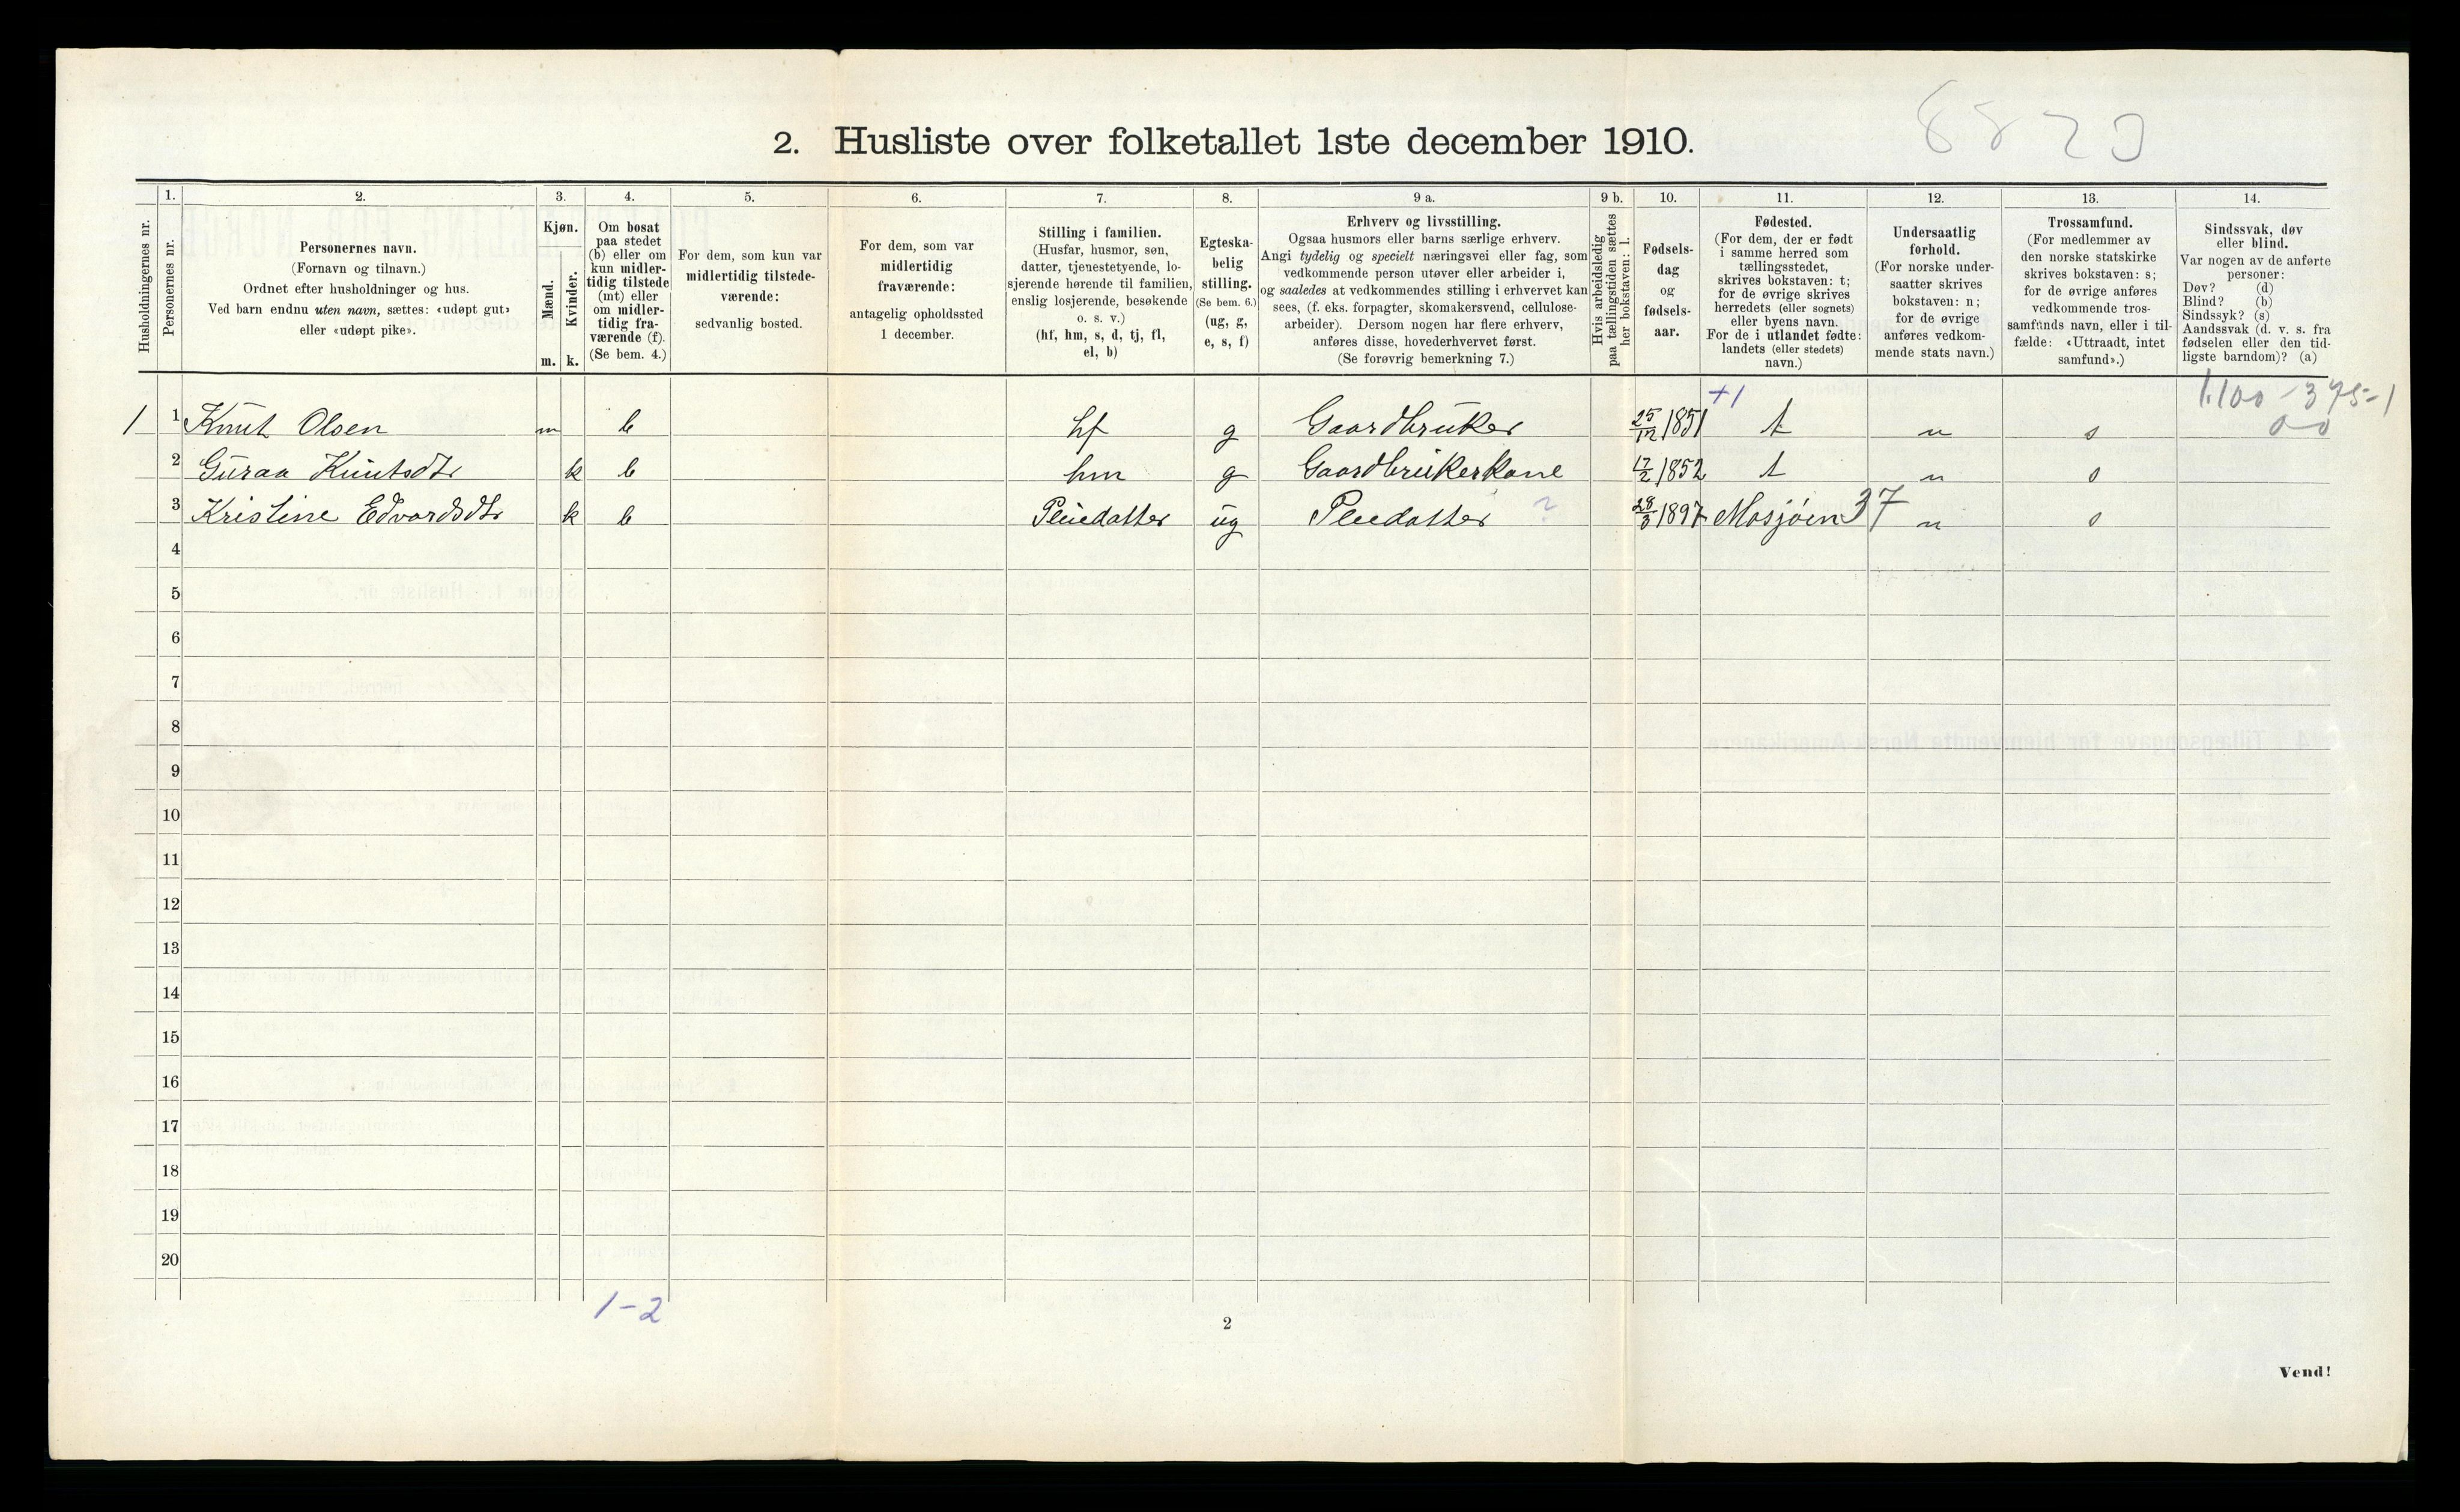 8823
2. Husliste over folketallet 1ste december 1910.
Husholdningernes nr.
1.
Personernes nr.
2.
Personernes navn.
(Fornavn og tilnavn.)
Ordnet efter husholdninger og hus.
Ved barn endnu uten navn, sættes: «udøpt gut»
eller «udøpt pike».
3.
Kjøn.
Mænd.
m.
Kvinder.
k.
4.
Om bosat
paa stedet
(b) eller om
kun midler-
tidig tilstede
(mt) eller
om midler-
tidig fra-
værende (f).
(Se bem. 4.)
5.
For dem, som kun var
midlertidig tilstede-
værende:
sedvanlig bosted.
6.
For dem, som var
midlertidig
fraværende:
antagelig opholdssted
1 december.
7.
Stilling i familien.
(Husfar, husmor, søn,
datter, tjenestetyende, lo-
sjerende hørende til familien,
enslig losjerende, besøkende
o. s. v.)
(hf, hm, s, d, tj, fl,
el, b)
8.
Egteska-
belig
stilling.
(Se bem. 6.)
(ug, g,
e, s, f)
9 a.
Erhverv og livsstilling.
Ogsaa husmors eller barns særlige erhverv.
Angi tydelig og specielt næringsvei eller fag, som
vedkommende person utøver eller arbeider i,
og saaledes at vedkommendes stilling i erhvervet kan
sees, (f. eks. forpagter, skomakersvend, cellulose-
arbeider). Dersom nogen har flere erhverv,
anføres disse, hovederhvervet først.
(Se forøvrig bemerkning 7.)
9 b.
Hvis arbeidsledig
paa tællingstiden sættes
her bokstaven: l.
10.
Fødsels-
dag
og
fødsels-
aar.
11.
Fødested.
(For dem, der er født
i samme herred som
tællingsstedet,
skrives bokstaven: t;
for de øvrige skrives
herredets (eller sognets)
eller byens navn.
For de i utlandet fødte:
landets (eller stedets)
navn.)
12.
Undersaatlig
forhold.
(For norske under-
saatter skrives
bokstaven: n;
for de øvrige
anføres vedkom-
mende stats navn.)
13.
Trossamfund.
(For medlemmer av
den norske statskirke
skrives bokstaven: s;
for de øvrige anføres
vedkommende tros-
samfunds navn, eller i til-
fælde: «Uttraadt, intet
samfund».)
14.
Sindssvak, døv
eller blind.
Var nogen av de anførte
personer:
Døv? (d)
Blind? (b)
Sindssyk? (s)
Aandssvak (d. v. s. fra
fødselen eller den tid-
ligste barndom)? (a)
+1
1.100 - 375-1
00
1 1 Knut Olsen m b hf g Gaardbruker 25/12 1851 t n s
2 Guraa Knutsdtr k b hm g Gaardbrukerkone 17/2 1852 t n s
3 Kristine Edvardsdtr k b Pleiedatter ug Pleiedatter ? 28/3 1897 Mosjøen 37 n s
4
5
6
7
8
9
10
11
12
13
14
15
16
17
18
19
20
1-2
2
Vend!